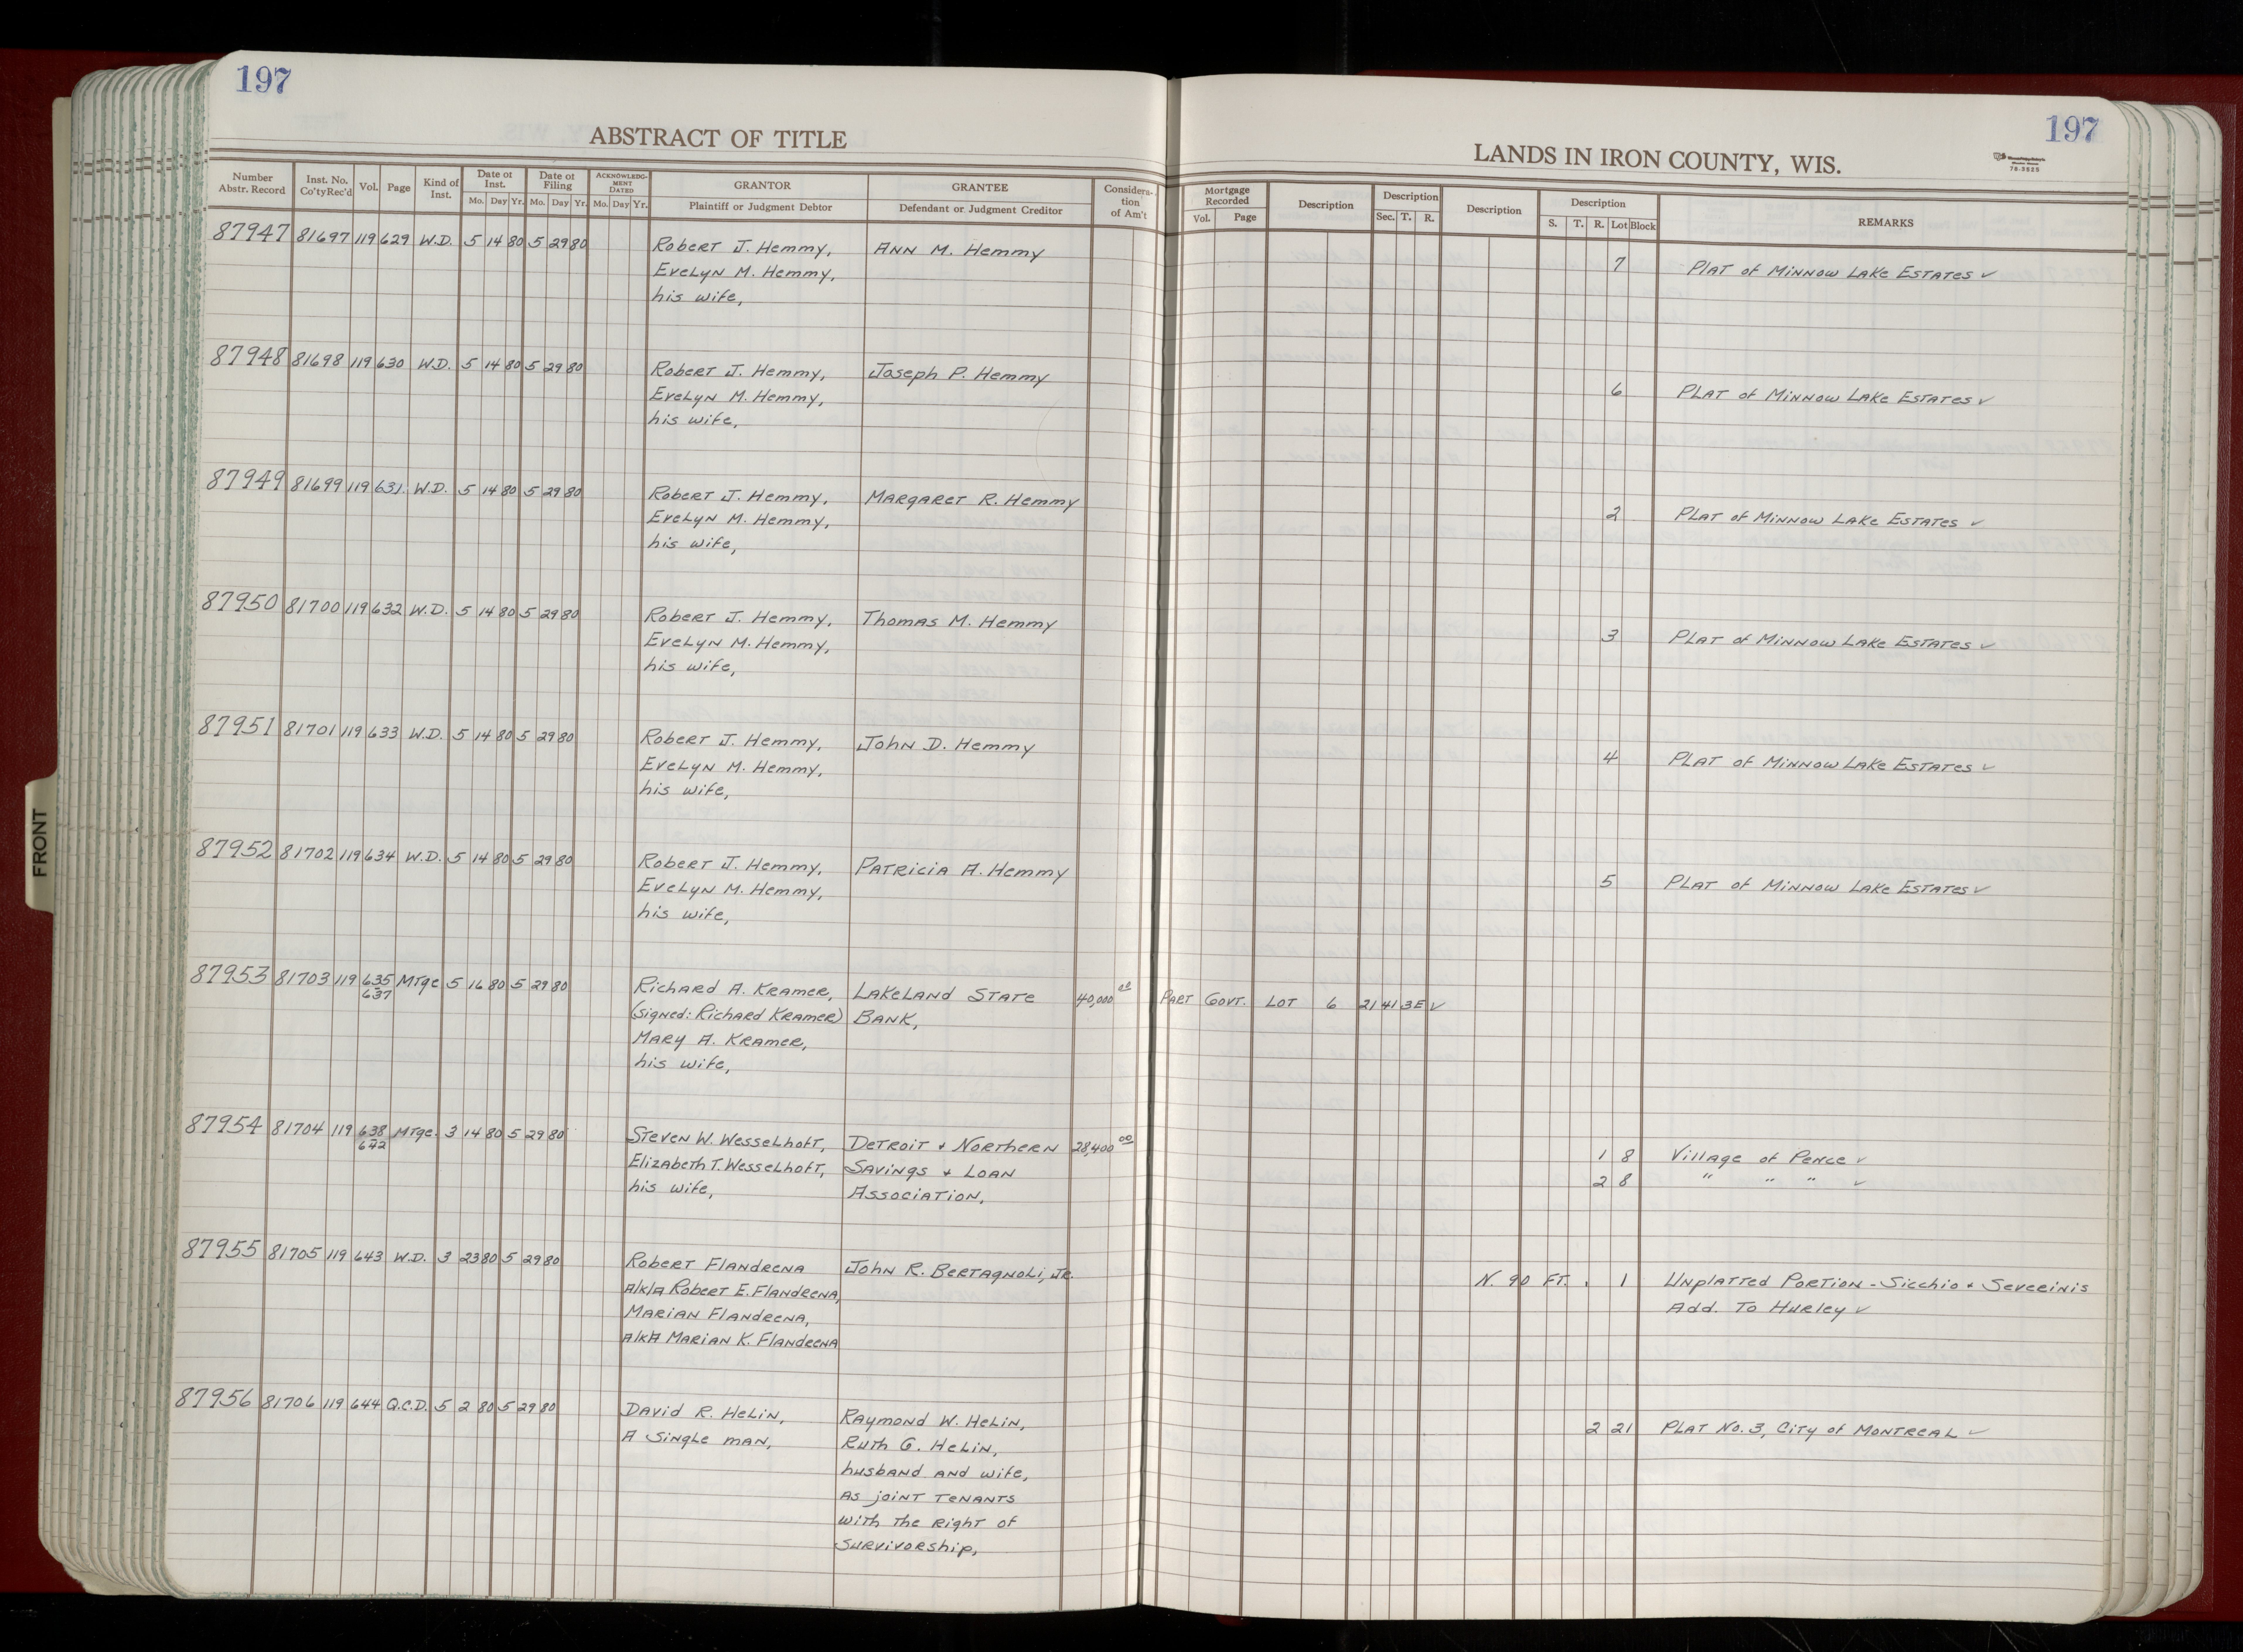 197
197
ABSTRACT OF TITLE
LANDS IN IRON COUNTY, WIS.
Number Abstr. Record Inst. No. Co'tyRec'd Vol. Page Kind of Inst. Date of Inst. Mo. Day Yr. Date of Filing Mo. Day Yr. ACKNOWLEDG-MENT DATED Mo. Day Yr. GRANTOR Plaintiff or Judgment Debtor GRANTEE Defendant or Judgment Creditor Considera-tion of Am't Mortgage Recorded Vol. Page Description Description Sec. T. R. Description Description S. T. R. Lot Block REMARKS
87947 81697 119 629 W.D. 5 14 80 5 29 80 Robert J. Hemmy, Ann M. Hemmy 7 Plat of Minnow Lake Estates ✓
Evelyn M. Hemmy,
his wife,
87948 81698 119 630 W.D. 5 14 80 5 29 80 Robert J. Hemmy, Joseph P. Hemmy 6 Plat of Minnow Lake Estates ✓
Evelyn M. Hemmy,
his wife,
87949 81699 119 631 W.D. 5 14 80 5 29 80 Robert J. Hemmy, Margaret R. Hemmy 2 Plat of Minnow Lake Estates ✓
Evelyn M. Hemmy,
his wife,
87950 81700 119 632 W.D. 5 14 80 5 29 80 Robert J. Hemmy, Thomas M. Hemmy 3 Plat of Minnow Lake Estates ✓
Evelyn M. Hemmy,
his wife,
87951 81701 119 633 W.D. 5 14 80 5 29 80 Robert J. Hemmy, John D. Hemmy 4 Plat of Minnow Lake Estates ✓
Evelyn M. Hemmy,
his wife,
87952 81702 119 634 W.D. 5 14 80 5 29 80 Robert J. Hemmy, Patricia A. Hemmy 5 Plat of Minnow Lake Estates ✓
Evelyn M. Hemmy,
his wife,
87953 81703 119 635 637 Mtge 5 16 80 5 29 80 Richard A. Kramer, Lakeland State 40,000 00 Part Govt. Lot 6 21 41 3E ✓
(signed: Richard Kramer) Bank,
Mary A. Kramer,
his wife,
87954 81704 119 638 642 Mtge. 3 14 80 5 29 80 Steven W. Wesselhoft, Detroit + Northern 28,400 00 1 8 Village of Pence ✓
Elizabeth T. Wesselhoft, Savings + Loan 2 8 " " " ✓
his wife, Association,
87955 81705 119 643 W.D. 3 23 80 5 29 80 Robert Flandrena John R. Bertagnoli, Jr. N. 90 Ft. 1 Unplatted Portion - Sicchio + Severinis
A/k/a Robert E. Flandrena, Add. To Hurley ✓
Marian Flandrena,
A/k/A Marian K. Flandrena
87956 81706 119 644 Q.C.D. 5 2 80 5 29 80 David R. Helin, Raymond W. Helin, 2 21 Plat No. 3, City of Montreal ✓
A single man, Ruth G. Helin,
husband and wife,
as joint tenants
with the right of
survivorship,
FRONT